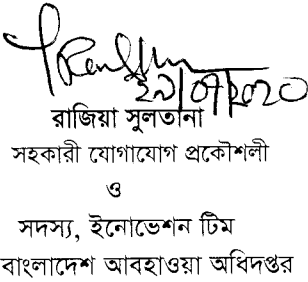 রাজিয়া সুলতানা
সহকারী যোগাযোগ প্রকৌশলী
ও
সদস্য, ইনোভেশন টিম
বাংলাদেশ আবহাওয়া অধিদপ্তর